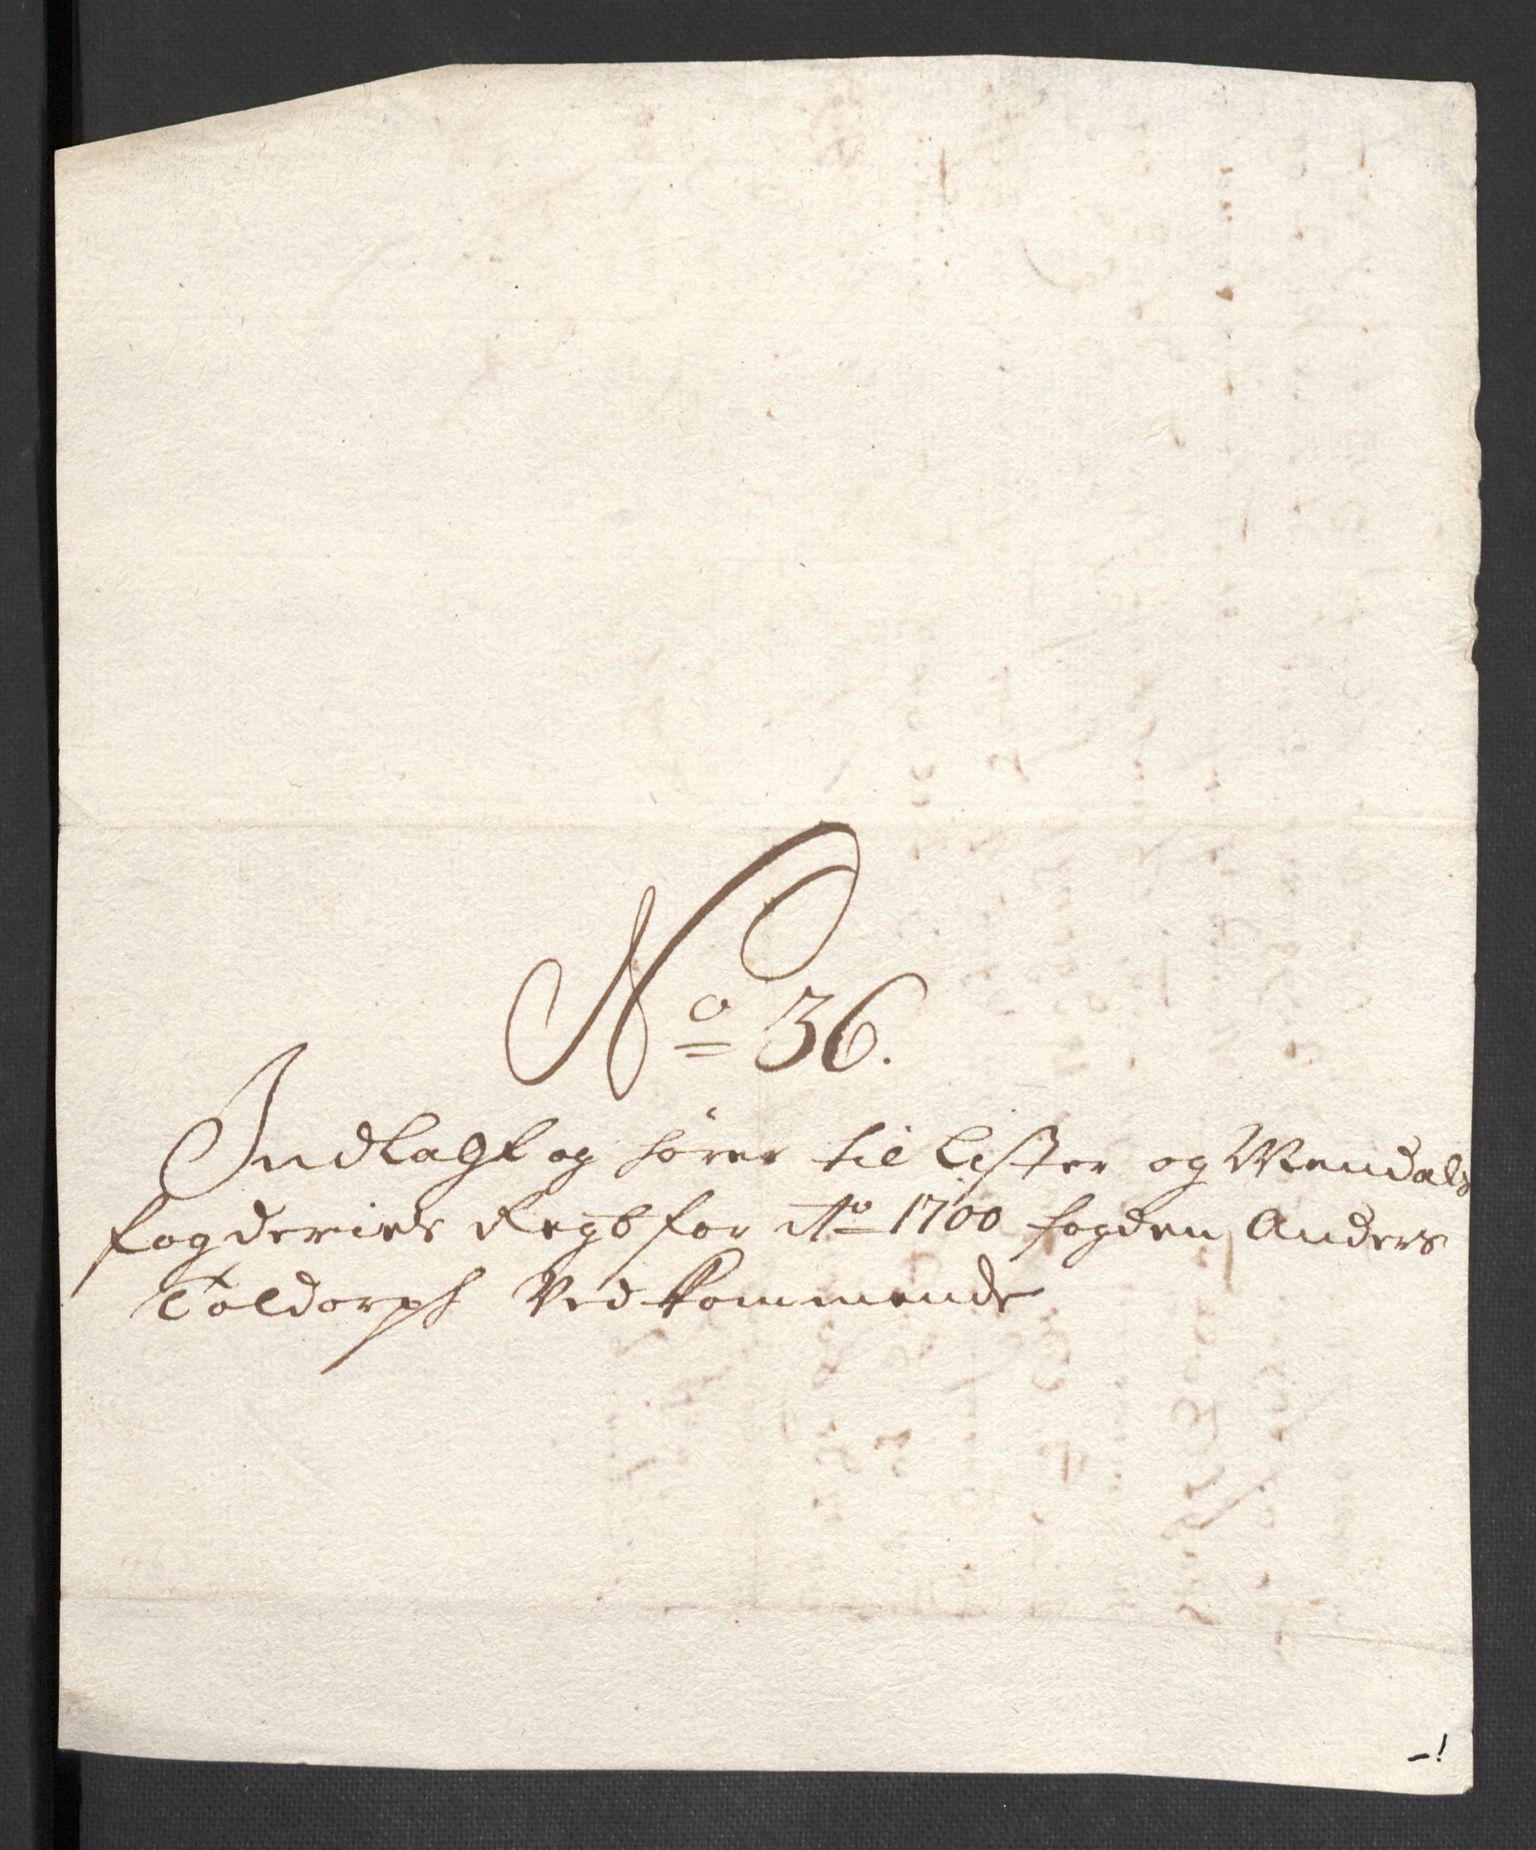 No 36.
Indlagt og hører til Lister og Mandals
fogderies Regb for Ao 1700 fogden Anders
Toldorph Ved kommende